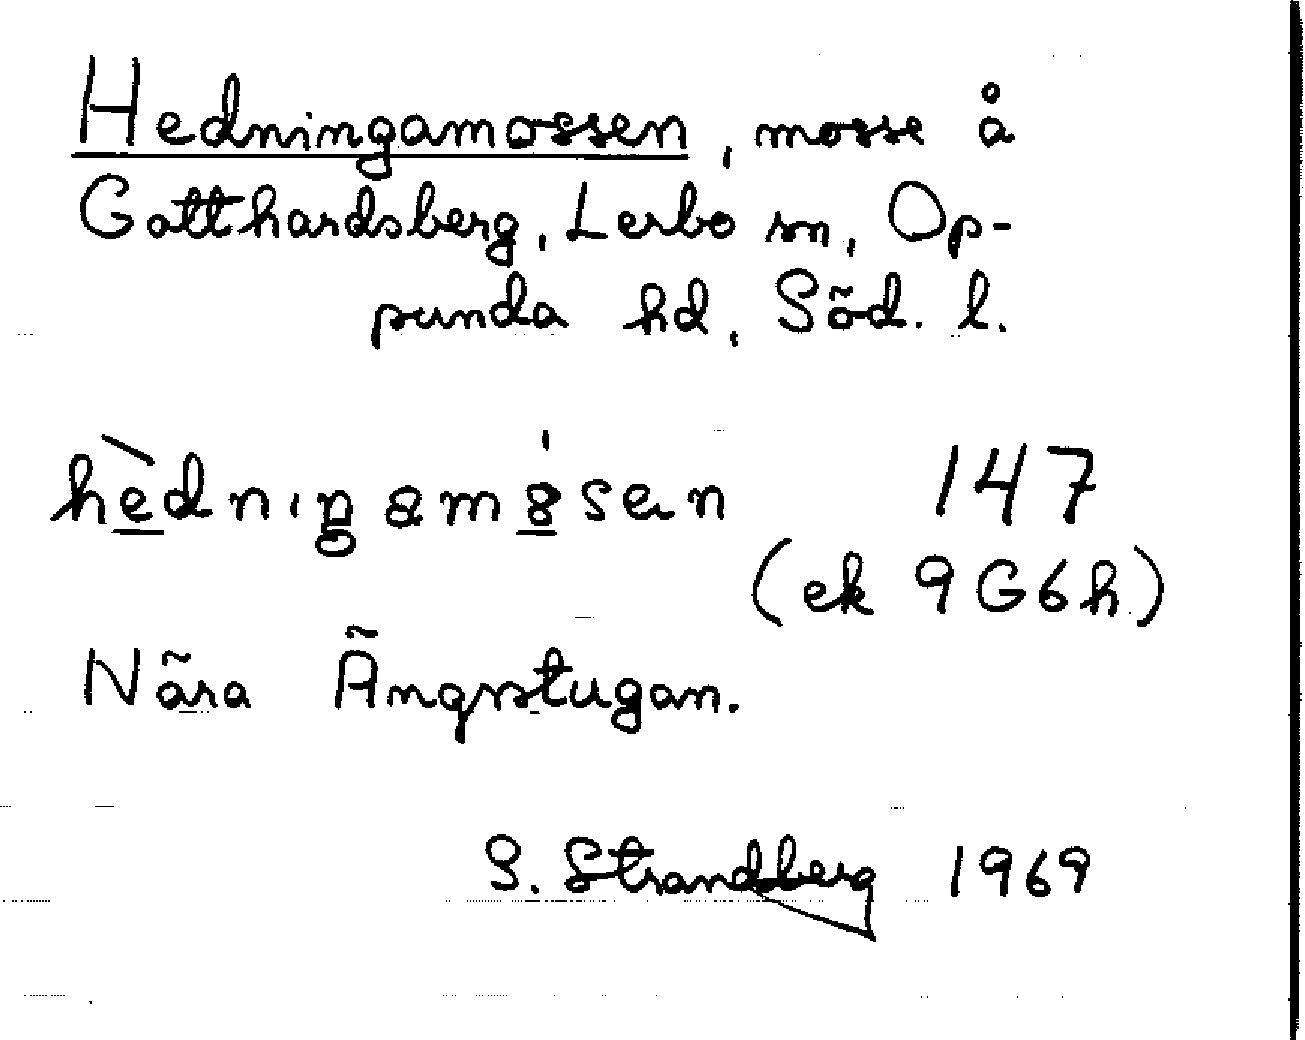 Hedningamossen, mosse å
Gotthardsberg, Lerbo sn, Op-
punda hd, Söd. l.
hèdniŋamåsen 147
(ek 9G6h)
Nära Ängsstugan.
S. Strandberg 1969